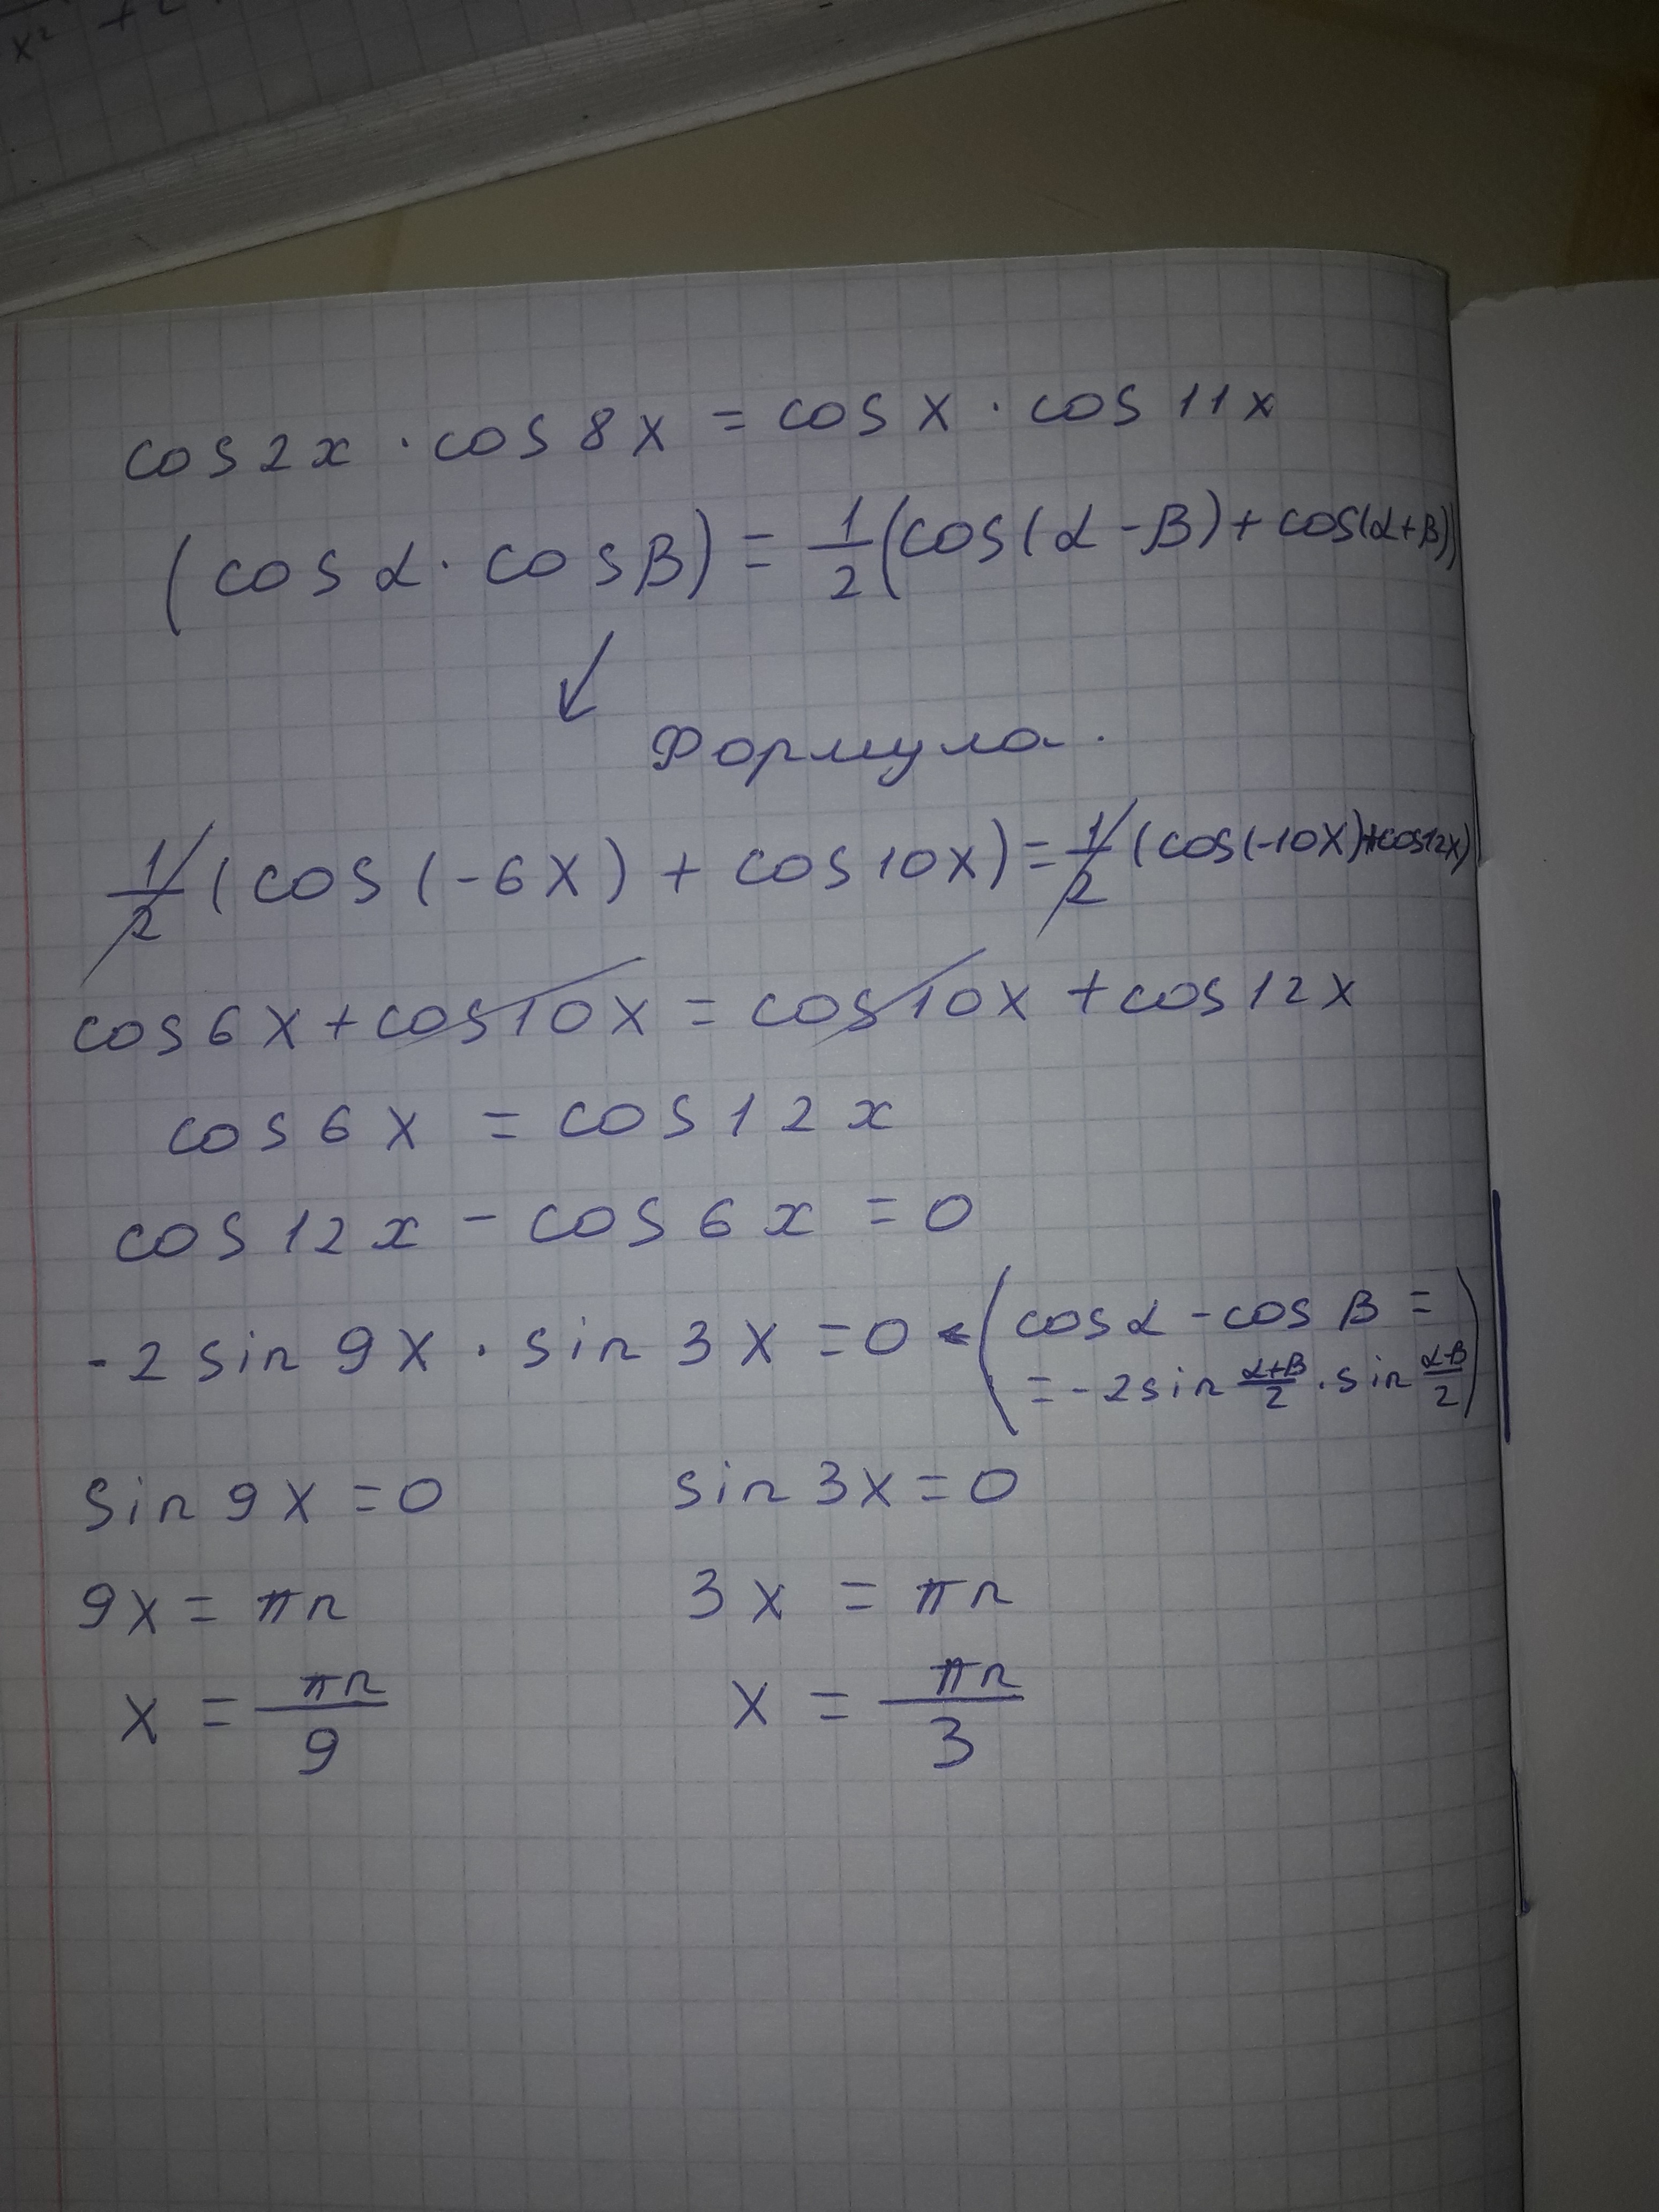 x² +
cos 2x · cos 8x = cos x · cos 11x
(cos α · cos β) = 1/2 (cos(α - β) + cos(α + β))
↙
Формула.
1/2 (cos(-6x) + cos 10x) = 1/2 (cos(-10x) + cos 12x)
cos 6x + cos 10x = cos 10x + cos 12x
cos 6x = cos 12x
cos 12x - cos 6x = 0
-2 sin 9x · sin 3x = 0 ← (cos α - cos β =
= -2 sin (α+β)/2 · sin (α-β)/2)
sin 9x = 0 sin 3x = 0
9x = πn 3x = πn
x = πn/9 x = πn/3